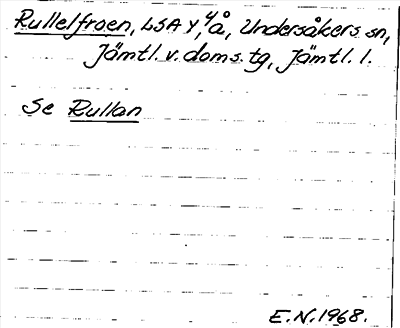 Rullelfroen, LSA Y, 4 å, Undersåkers sn,
Jämtl. v. doms. tg, Jämtl. l.
Se Rullan
E.N. 1968.